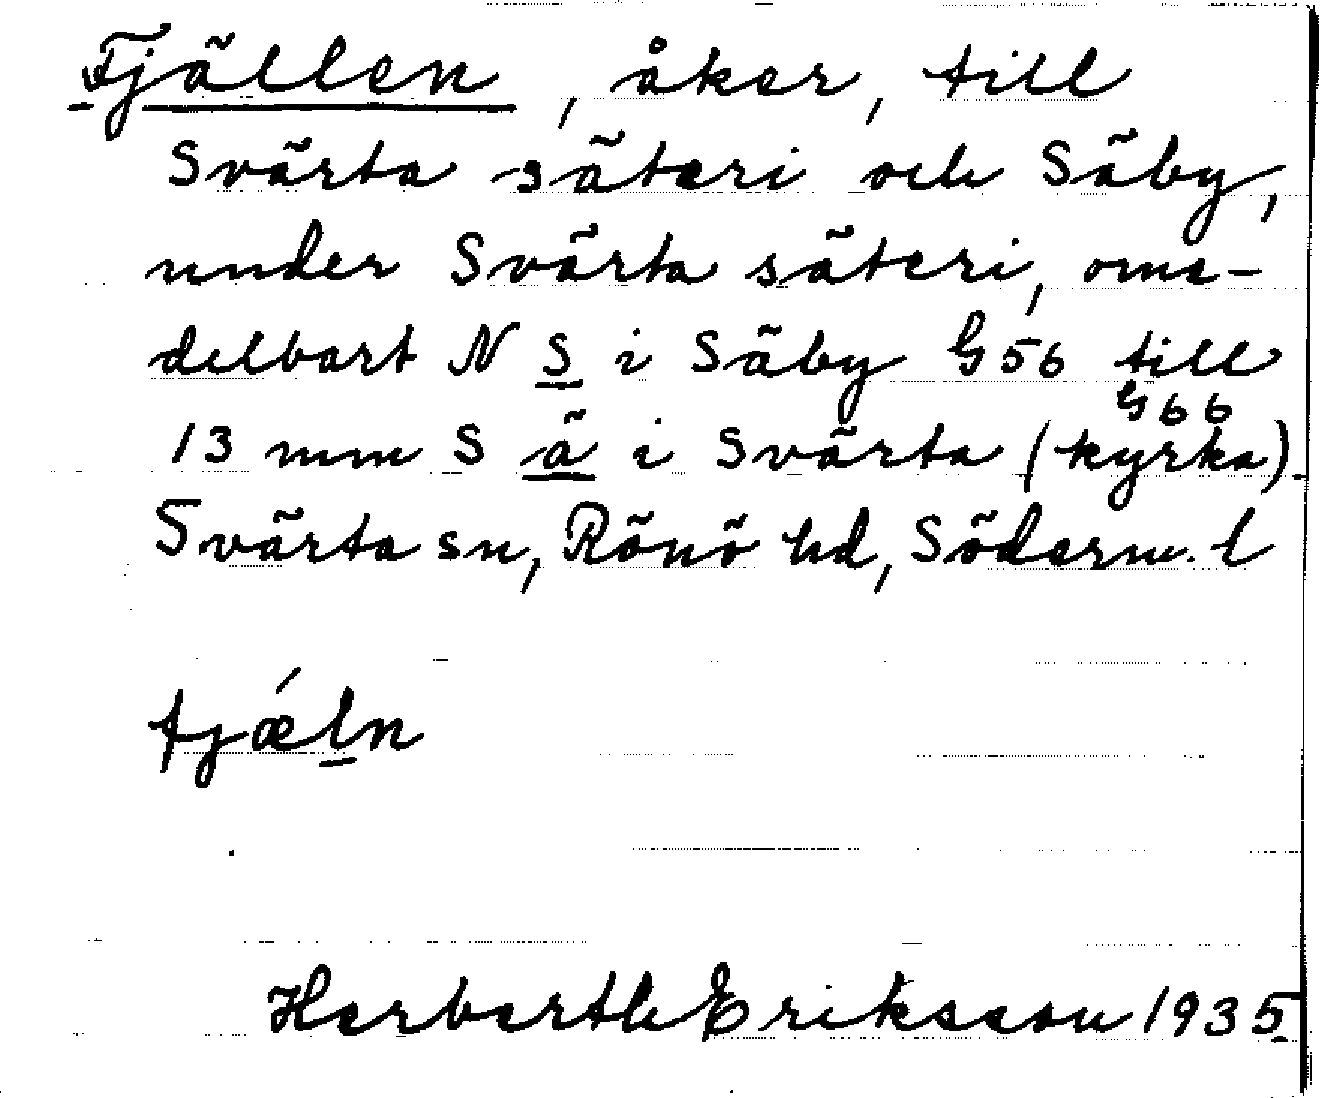 Fjällen, åker, till
Svärta säteri och Säby,
under Svärta säteri, ome-
delbart N S i Säby G56 till
G66
13 mm S ä i Svärta (kyrka).
Svärta sn, Rönö hd, Söderm. l
fjǽln
Herberth Eriksson 1935